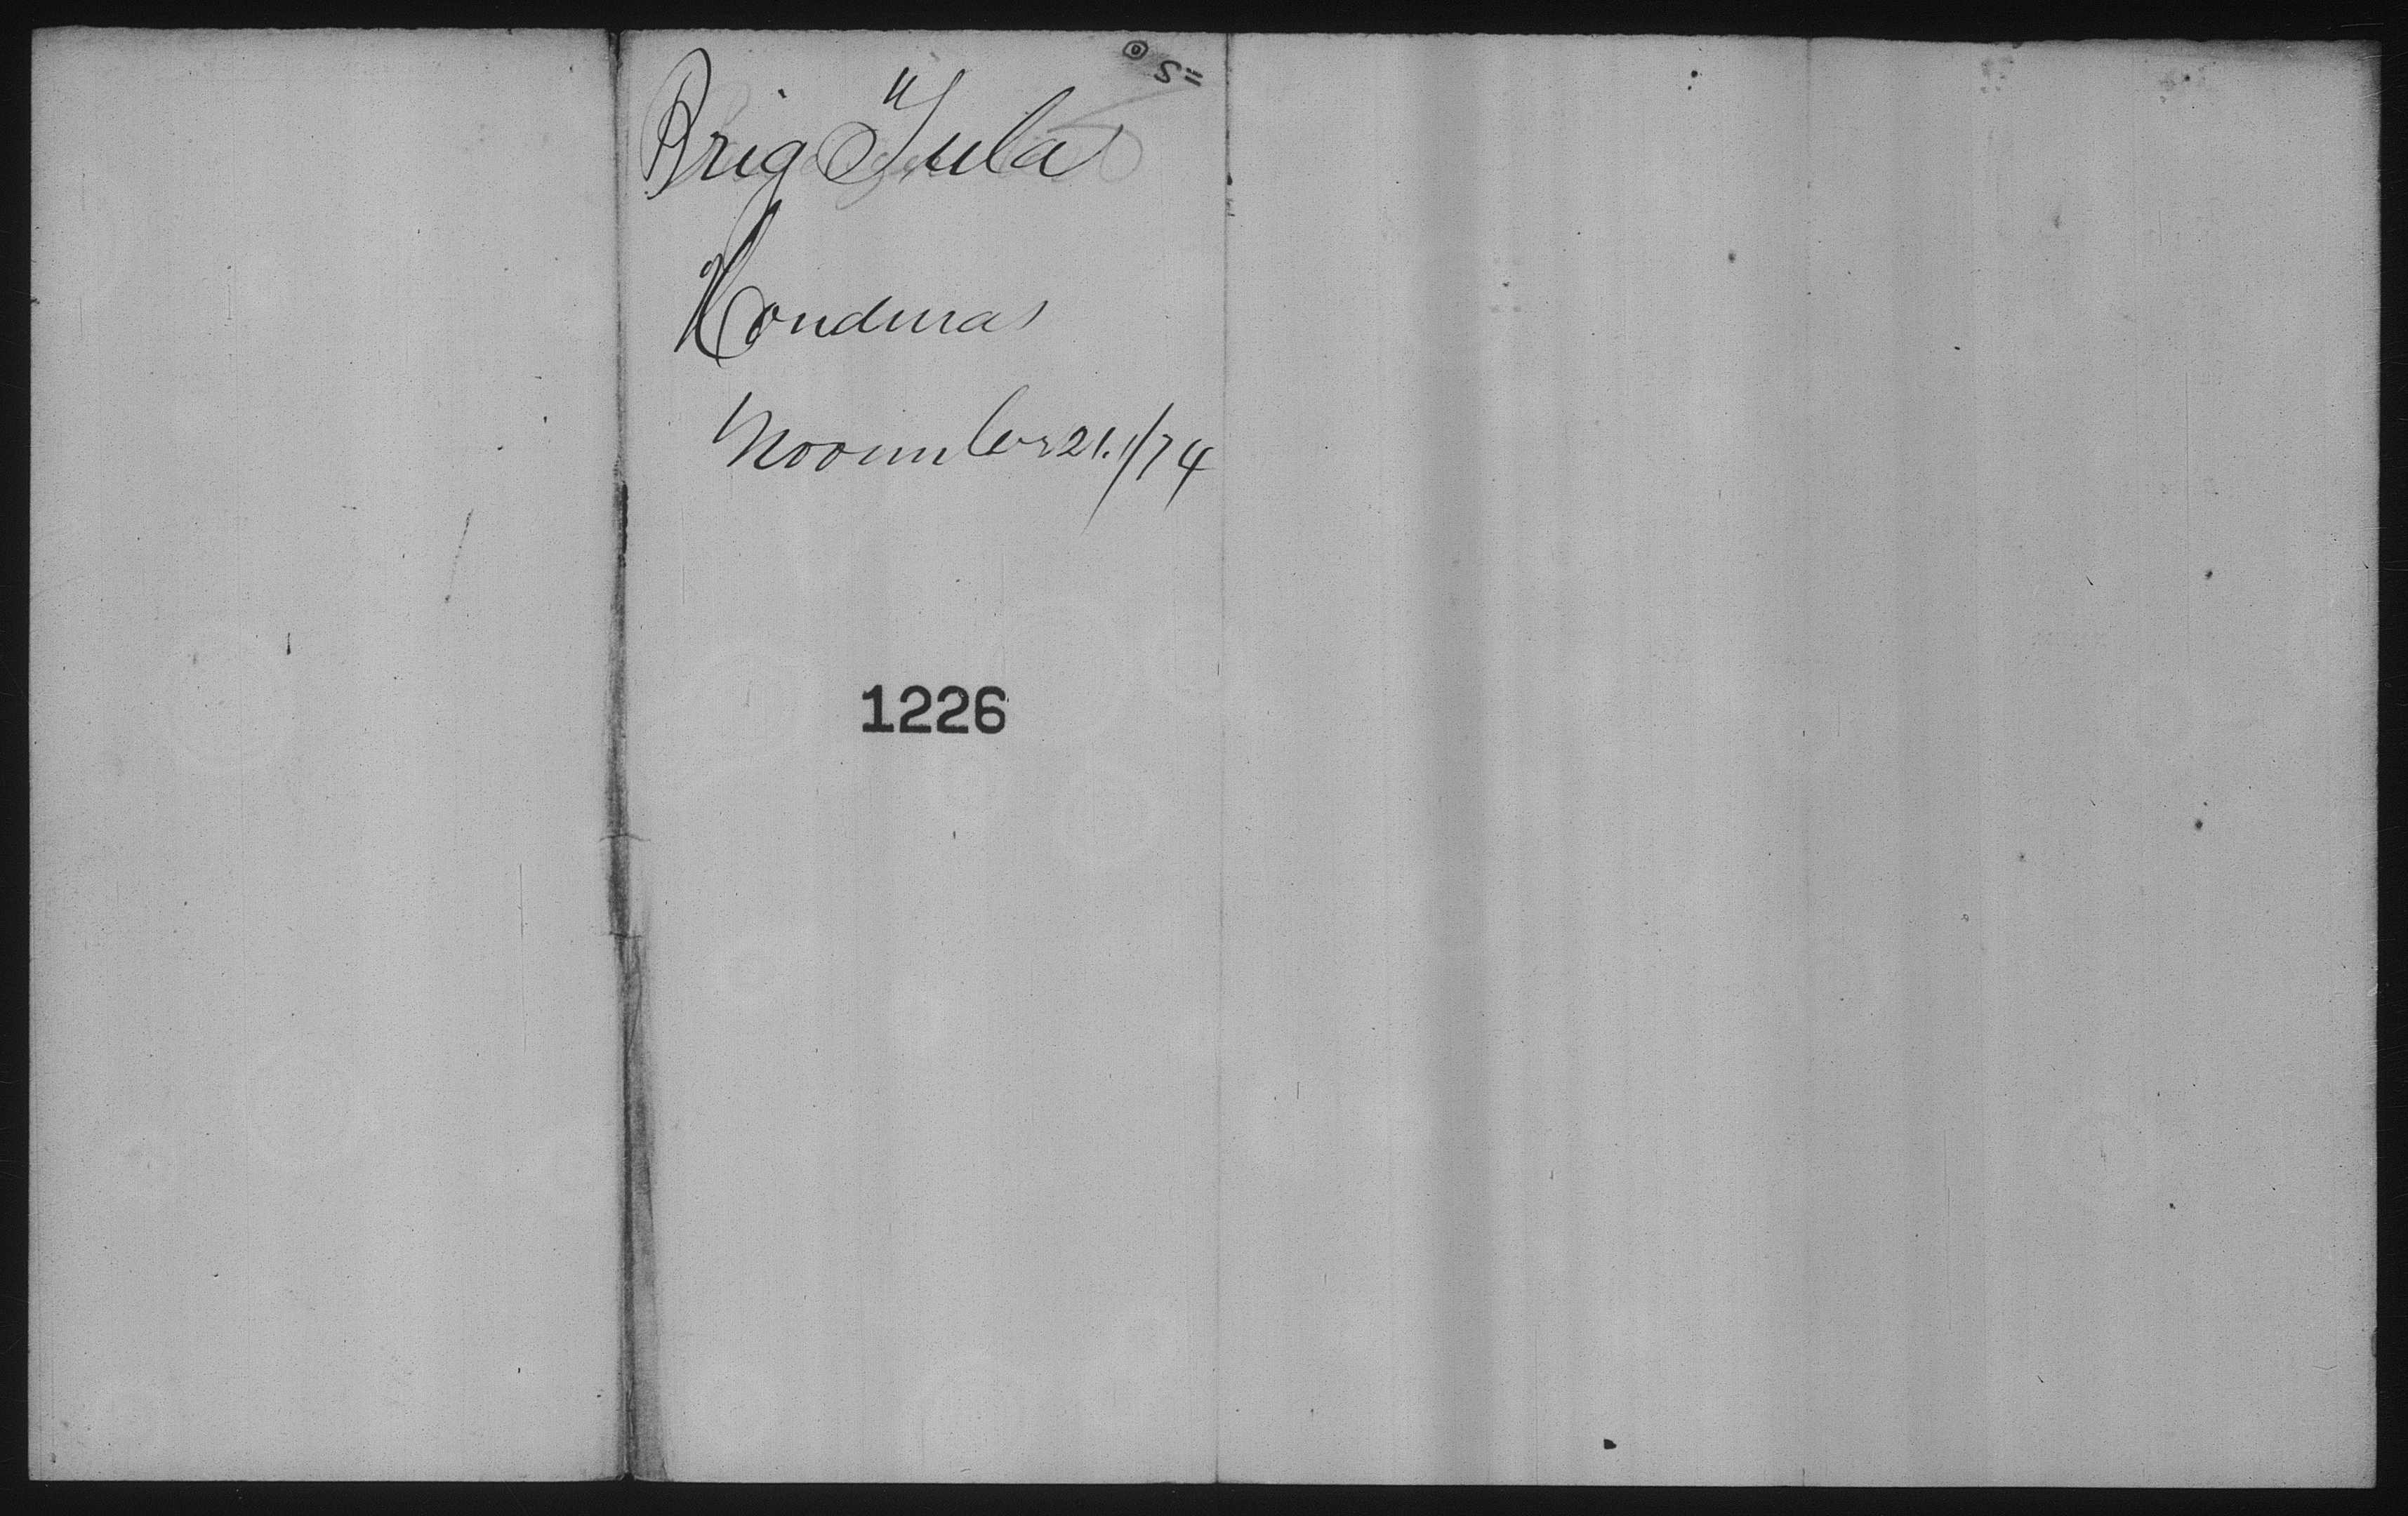 Brig "Tula
Honduras
November 21./74
1226